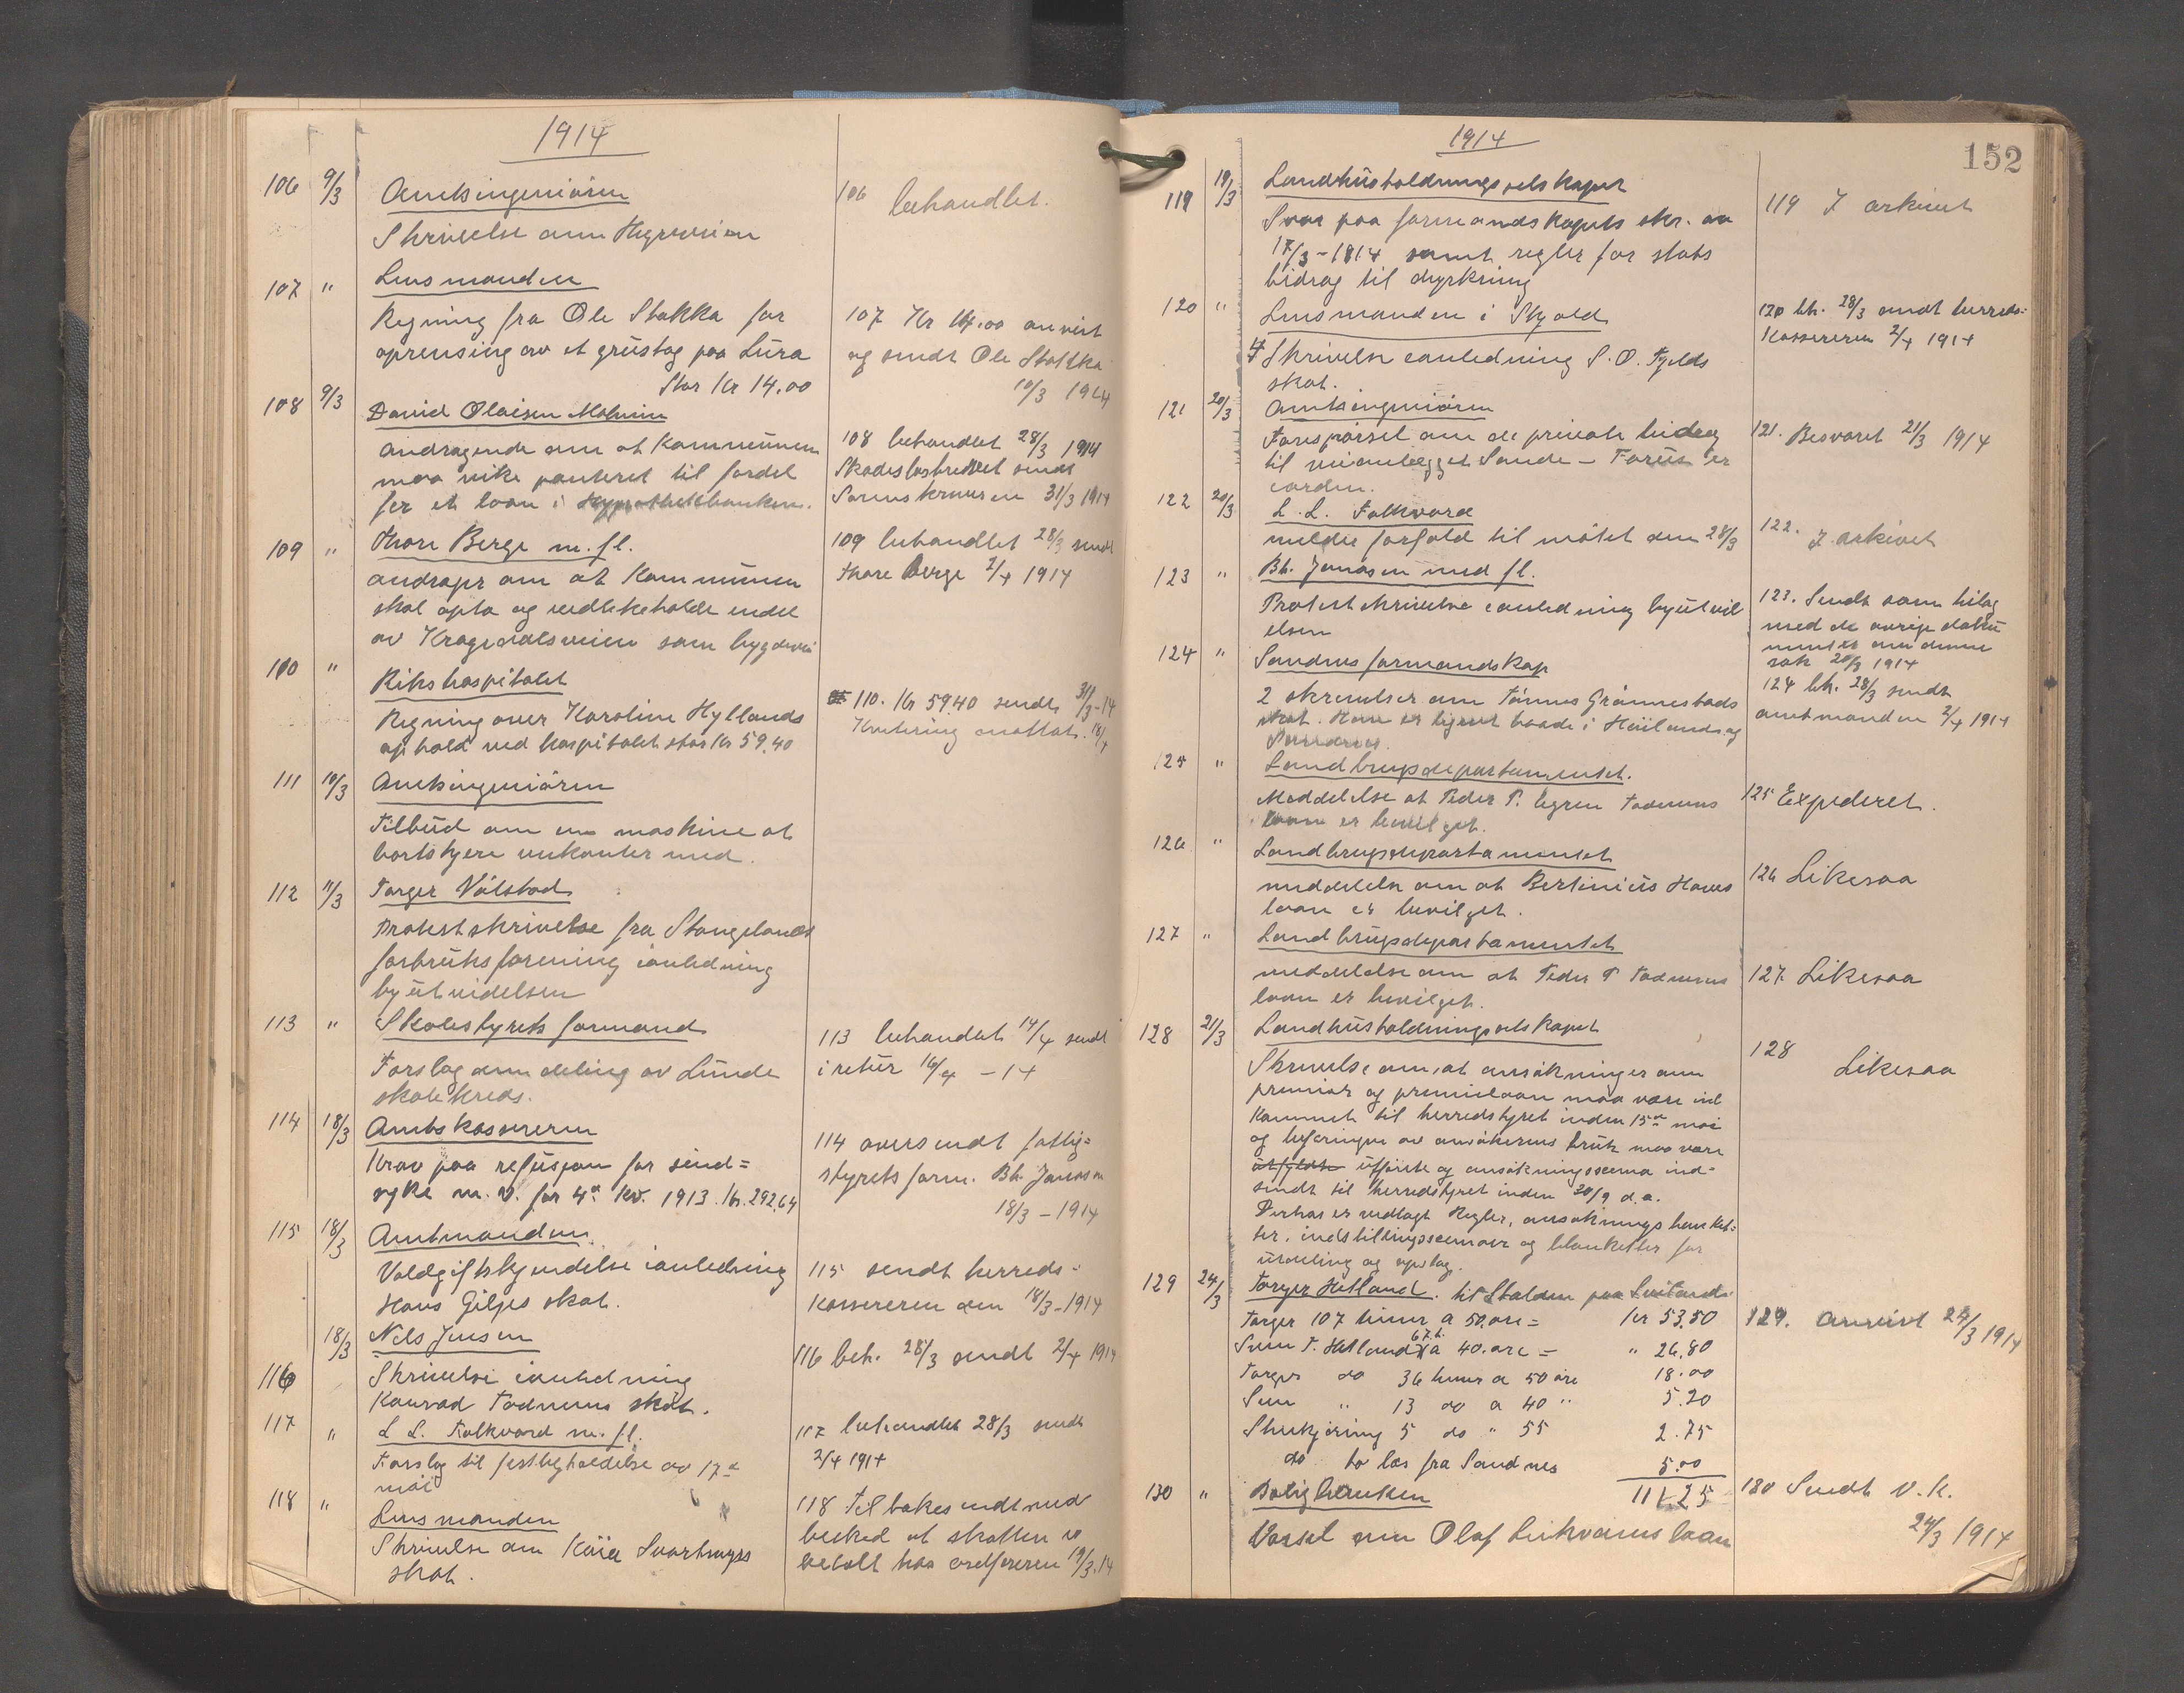 1914
106 9/3 Amtsingeniøren
Skrivelse om Høgeveien
106 behandlet.
107 " Lensmanden
Regning fra Ole Stokka for
oprensing av et grustag paa Lura
Stor Kr 14.00
107 Kr 14.00 anvist
og sendt Ole Stokka
10/3 1914
108 9/3 David Olaisen Malmin
Andragende om at Kommunen
maa vike panteret til fordel
for et laan i Hypothekbanken.
108 behandlet 28/3 1914
Skadeslosbrevet sendt
Sorenskriveren 31/3 1914
109 " Thore Berge m. fl.
andrager om at Kommunen
skal opta og vedlikeholde endel
av Kragedalsveien som bygdevei
109 behandlet 28/3 sendt
Thore Berge 2/4 1914
110 " Rikshospitalet
Regning over Karoline Hyllands
ophold ved hospitalet stor Kr 59.40
110. Kr 59.40 sendt 31/3-14
Kvitering mottat. 18/4
111 10/3 Amtsingeniøren
Tilbud om en maskine at
bortskjære veikanter med.
112 11/3 Torger Vølstad
Protestskrivelse fra Stangelands
forbruksforening ianledning
byutvidelsen
113 " Skolestyrets formand
Forslag om deling av Lunde
skolekreds.
113 behandlet 14/4 sendt
i retur 16/4 - 14
114 18/3 Amtskassereren
Krav paa refusjon for sind=
syke m. v. for 4de kv. 1913. Kr. 292,64
114 oversendt fattig=
styrets form. Bh. Jonasen
18/3 - 1914
115 18/3 Amtmanden
Voldgiftskjendelse ianledning
Hans Giljes skat.
115 sendt herreds-
kassereren den 18/3-1914
116 18/3 Nels Jensen
Skrivelse ianledning
Konrad Todnems skat.
116 beh. 28/3 sendt 2/4 1914
117 " L L. Folkvord m. fl.
Forslag til festligholdelse av 17de
mai
117 behandlet 28/3 sendt
2/4 1914
118 " Lensmanden
Skrivelse om Kaia Svartmyrs
skat.
118 Tilbakesendt med
besked at skatten er
betalt hos ordføreren 19/3.14
1914
152
119 19/3 Landhusholdningsselskapet
Svar paa formandskapets skr. av
17/3-1814 samt regler for stats
bidrag til dyrkning
119 I arkivet
120 " Lensmanden i Skjold
Skrivelse ianledning S. O. Fjelds
skat.
120 bh. 28/3 sendt herreds-
Kassereren 2/4 1914
121 20/3 Amtsingeniøren
Forespørsel om de private bidrag
til veianlægget Sande - Forus er
iorden.
121. Besvaret 21/3 1914
122 20/3 L. L. Folkvord
melder forfald til møtet den 28/3
122. I arkivet
123 " Bh. Jonasen med fl.
Protestskrivelse ianledning byutvid
elsen
123. Sendt som bilag
med de øvrige doku
menter om denne
sak 20/3 1914
124 " Sandnes formandskap
2 skrivelser om Tønnes Grønnestads
skat. Han er lignet baade i Høiland og
Sandnes.
124 bh. 28/3 sendt
amtmanden 2/4 1914
125 " Landbrugsdepartementet.
Meddelelse at Peder P. Todnems
laan er bevilget.
125 Expederet.
126 " Landbrugsdepartementet
meddelelse om at Bertinius Hoves
laan er bevilget.
126 Likesaa
127 " Landbrugsdepartementet
meddelelse om at Peder P Todnems
laan er bevilget.
127. Likesaa
128 21/3 Landhusholdningsselskapet
Skrivelse om, at ansøkninger om
premier og premielaan maa være ind
kommet til herredstyret inden 15de mai
og befaringen av ansøkerens bruk maa være
utfyldte utførte og ansøkningsskema ind-
sendt til herredstyret inden 30/9 d.a.
Derhos er vedlagt Regler, ansøkningsblanket-
ter, indstillingsskemaer og blanketter for
utdeling og opslag.
128 Likesaa
129 24/3 Torger Hetland. til Stalden paa
Torger 107 timer a 50 øre = kr 53,50
Sven T. Hetland 67 t. a 40. øre = " 26,80
Torger do 36 timer a 50 øre 18.00
Sven " 13 do a 40 " 5.20
Stenkjøring 5 do " 55 2.75
do to læs fra Sandnes 5.00
111.25
129. anvist 24/3 1914
130 " Boligbanken
Varsel om Olaf Lerkvams laan
130 Sendt V. K.
24/3 1914